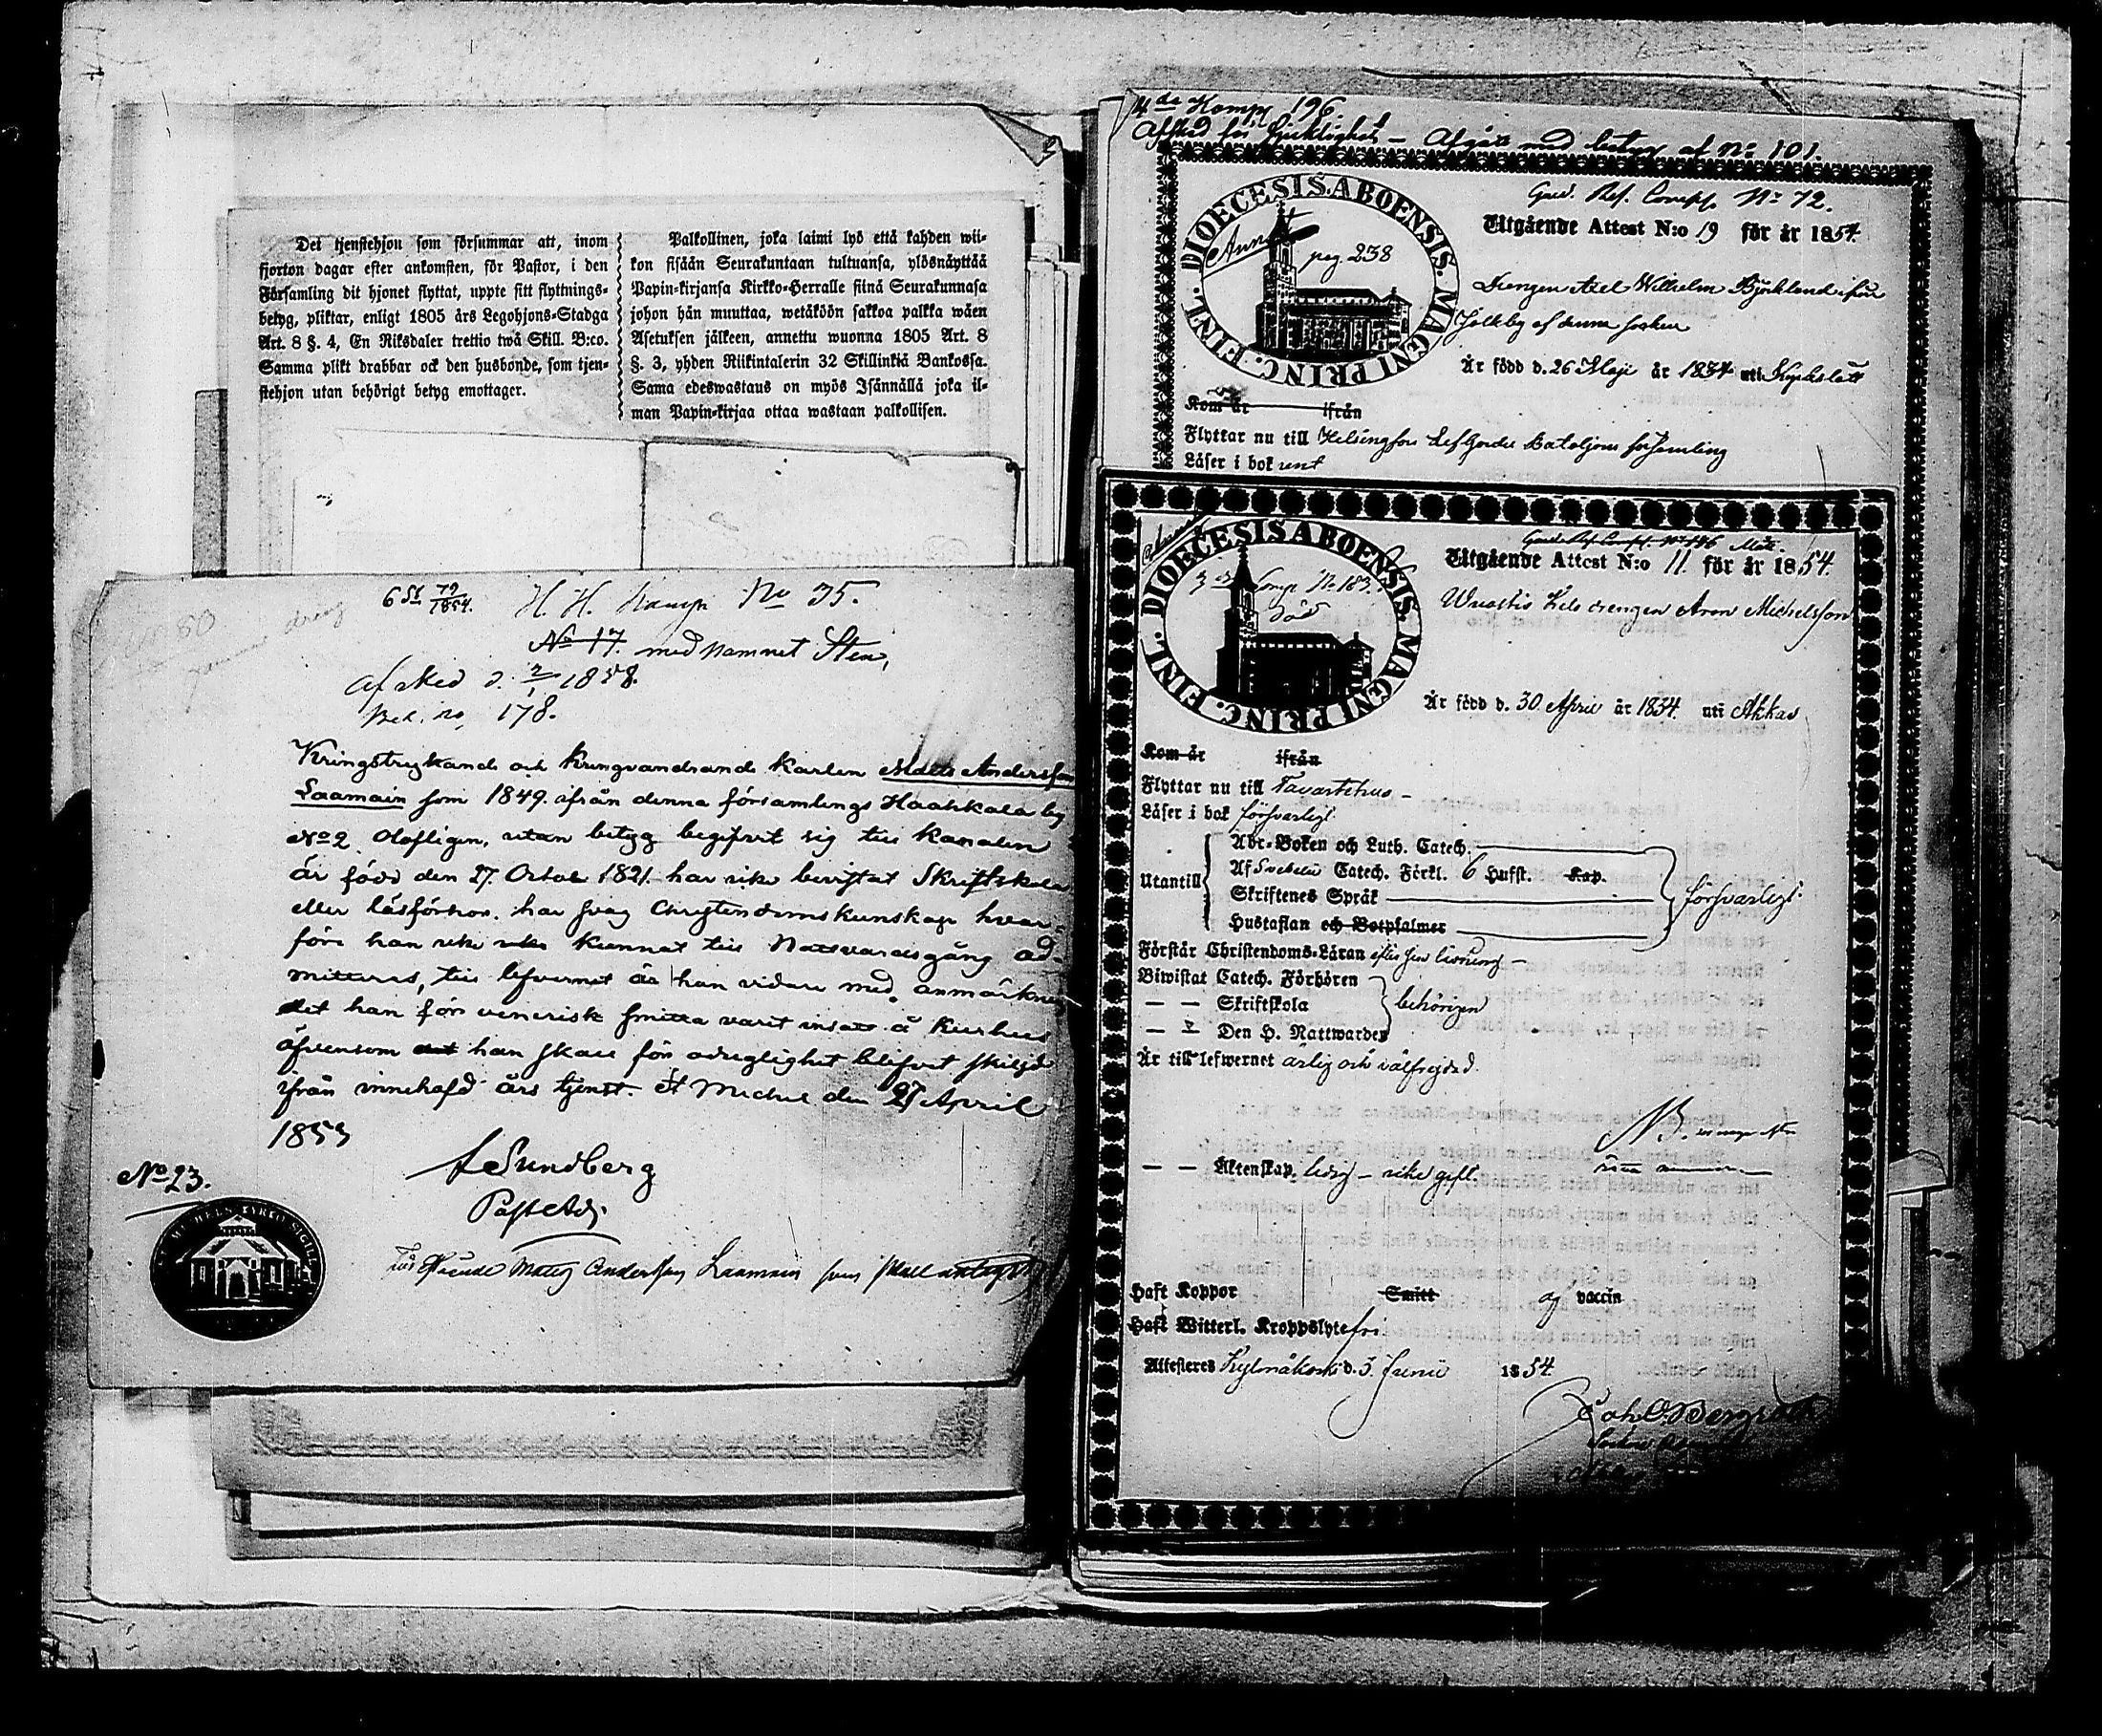 Det tjenstehjon som försummar att, inom
fjorton dagar efter ankomsten, för Pastor, i den
Församling dit hjonet flyttat, uppte sitt flyttnings-
betyg, pliktar, enligt 1805 års Legohjons-Stadga
Art. 8 §. 4, En Riksdaler trettio twå Skill. B:co.
Samma plikt drabbar ock den husbonde, som tjen-
stehjon utan behörigt betyg emottager.
Palkollinen, joka laimi lyö että kahden wii-
kon sisään Seurakuntaan tultuansa, ylösnäyttää
Papin-kirjansa Kirkko-Herralle siinä Seurakunnasa
johon hän muuttaa, wetäköön sakkoa palkka wäen
Asetuksen jälkeen, annettu wuonna 1805 Art. 8
§. 3, yhden Riikintalerin 32 Skillinkiä Bankossa.
Sama edeswastaus on myös Isännällä joka il-
man Papin-kirjaa ottaa wastaan palkollisen.
6 St 72/1854. H. H. Komp No 35.
No 17. med namnet Sten,
Afsked d. 2/1 1858.
Bet. no 178.
Kringstrykande och kringvandrande Karlen Matts Andersson
Laamain som 1849 ifrån denna församlings Haahkala by
No 2 olofligen, utan betyg begifvit sig till Kanalen
är född den 27. Octob 1821. har icke bevistat Skriftskola
eller läsförhör. har svag Christendomskunskap hvar-
före han icke kunnat till Nattvardsgång ad-
mitteras, till lefvernet är han vidare med anmärkning
det han för venerisk smitta varit insatt å Kurhus
äfvensom han skall för oduglighet blifvit skiljd
ifrån innehafd års tjenst. St Michel den 27 April
1853
No 23.
A Sundberg
Past Adj.
Matts Andersson Laamain som skall antagas
4de Komp 196.
Afsked för sjuklighet – Afgått med betyg af No 101.
DIOECESIS ABOENSIS. MAGNI PRINC. FINL.
pag. 238
Gard. Res. Comp. No 72.
Utgående Attest N:o 19 för år 1854.
Drengen Axel Wilhelm Björklund ifrån
Jolkby af denna socken
Är född d. 26 Maji år 1834 uti Kyrkslätt
Kom år ifrån
Flyttar nu till Helsingfors Lif Gardes Bataljons församling
Läser i bok rent
DIOECESIS ABOENSIS. MAGNI PRINC. FINL.
3de Comp No 183.
död
Utgående Attest N:o 11. för år 1854.
drengen Aron Michelsson
Är född d. 30 April år 1834. uti Akkas
Kom år ifrån
Flyttar nu till Tavastehus –
Läser i bok försvarligt
Utantill
Abc-Boken och Luth. Catech.
Af Svebelii Catech. Förkl. 6 Hufst. Kap.
Skriftenes Språk
Hustaflan och Botpsalmer
försvarligt.
Förstår Christendoms-Läran efter sin läsning –
Biwistat Catech. Förhören
— — Skriftskola
— — Den H. Nattwarden
behörigen
Är till lefwernet ärlig och välfrejdad.
NB.
— — Äktenskap. ledig – icke gift.
Haft Koppor Smitt vaccin
Haft Witterl. Kroppslyte fri
Attesteres Kylmäkoski d. 3 Junii 1854.
Joh. O. Bergroth